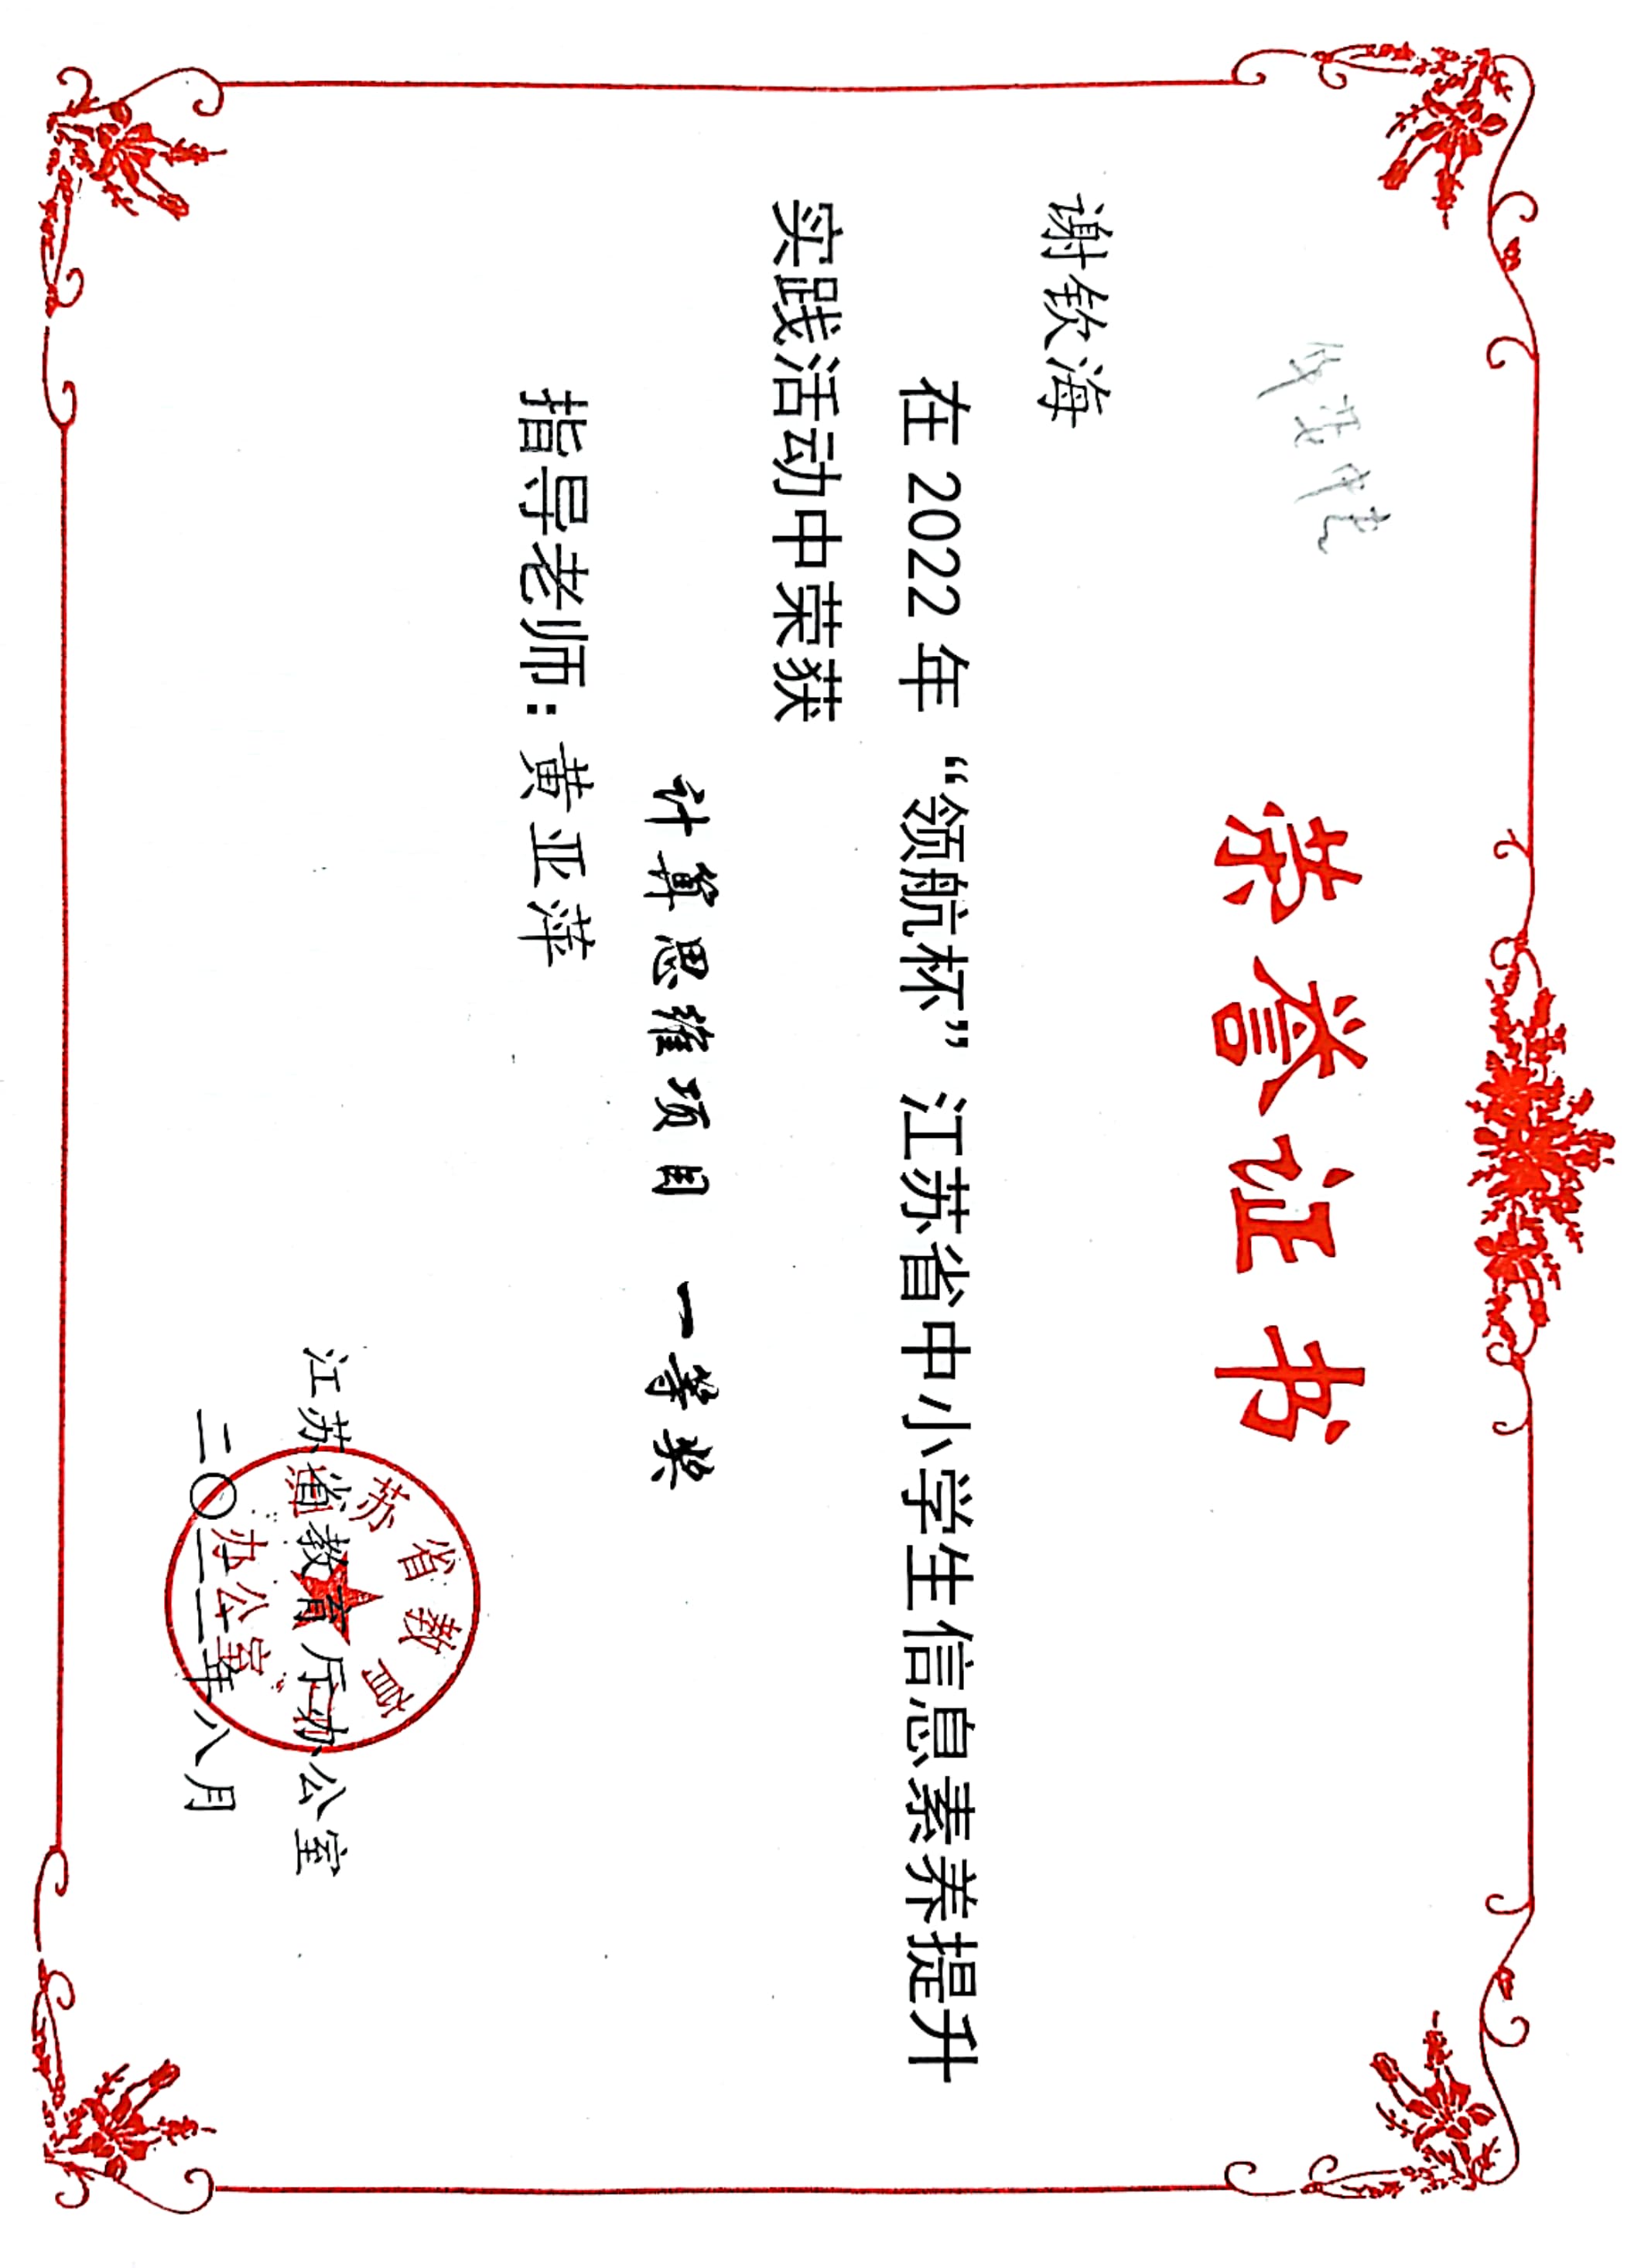 荣誉证书
谢钦海
在 2022 年“领航杯”江苏省中小学生信息素养提升
实践活动中荣获
计算思维项目 一等奖
指导老师：黄亚萍
江苏省教育厅办公室
二〇二二年八月
苏省教育
办公室